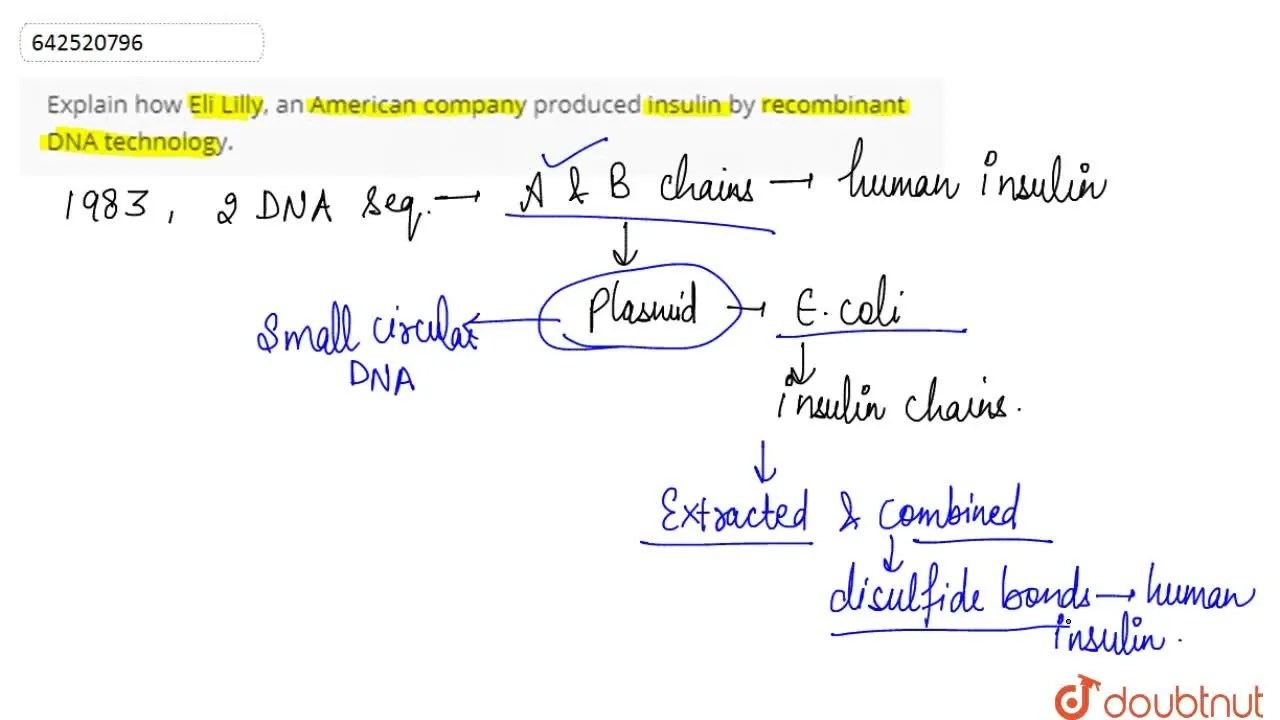 642520796
Explain how Eli Lilly, an American company produced insulin by recombinant
DNA technology.
1983, 2 DNA Seq. → A & B chains → human insulin
↓
Plasmid → E.coli
Small circular
DNA
↓
insulin chains.
↓
Extracted & Combined
↓
disulfide bonds → human
insulin.
doubtnut